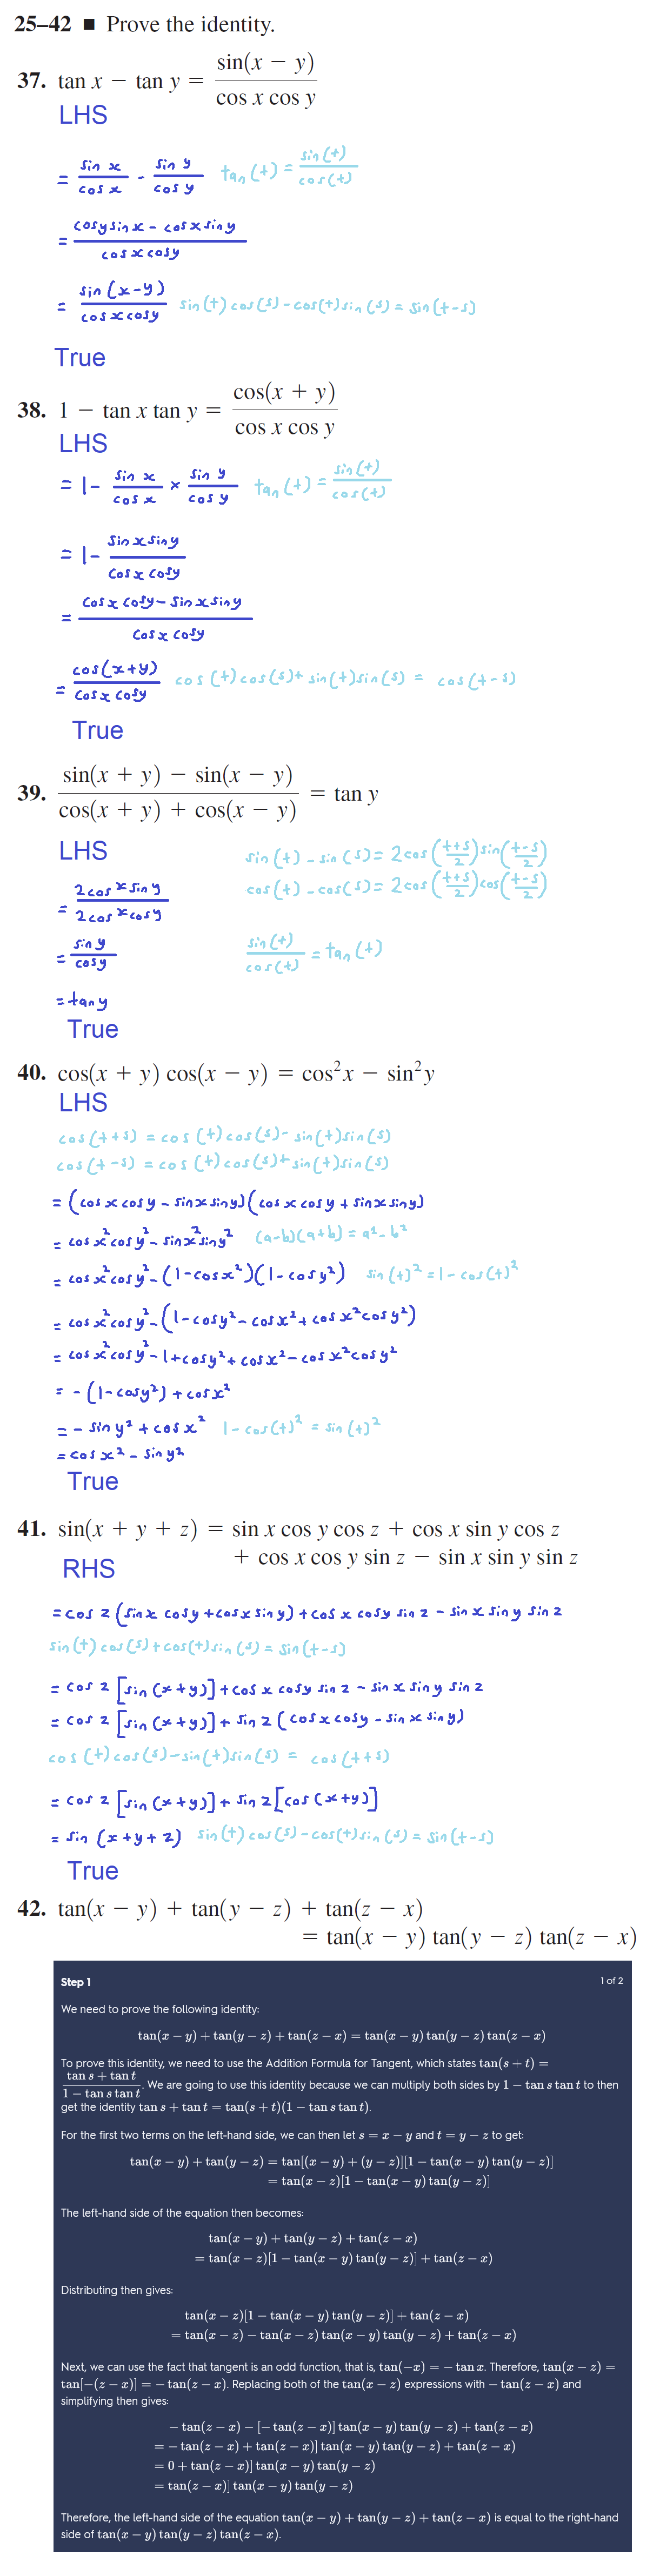 25–42 ■ Prove the identity.
37. tan x − tan y = sin(x − y) / cos x cos y
LHS
= sin x / cos x - sin y / cos y   tan(t) = sin(t) / cos(t)
= cosy sin x - cos x sin y / cos x cosy
= sin (x-y) / cos x cosy   sin(t) cos(s) - cos(t) sin(s) = sin(t-s)
True
38. 1 − tan x tan y = cos(x + y) / cos x cos y
LHS
= 1 - sin x / cos x × sin y / cos y   tan(t) = sin(t) / cos(t)
= 1 - sin x sin y / cos x cosy
= cos x cosy - sin x sin y / cos x cosy
= cos(x+y) / cos x cosy   cos(t) cos(s) + sin(t) sin(s) = cos(t-s)
True
39. sin(x + y) − sin(x − y) / cos(x + y) + cos(x − y) = tan y
LHS   sin(t) - sin(s) = 2cos((t+s)/2) sin((t-s)/2)
= 2cos x sin y / 2cos x cos y   cos(t) - cos(s) = 2cos((t+s)/2) cos((t-s)/2)
= sin y / cosy   sin(t) / cos(t) = tan(t)
= tan y
True
40. cos(x + y) cos(x − y) = cos²x − sin²y
LHS
cos(t+s) = cos(t) cos(s) - sin(t) sin(s)
cos(t-s) = cos(t) cos(s) + sin(t) sin(s)
= (cos x cos y - sin x sin y)(cos x cos y + sin x sin y)
= cos x² cos y² - sin x² sin y²   (a-b)(a+b) = a² - b²
= cos x² cos y² - (1-cos x²)(1-cos y²)   sin(t)² = 1 - cos(t)²
= cos x² cos y² - (1-cos y² - cos x² + cos x² cos y²)
= cos x² cos y² - 1 + cos y² + cos x² - cos x² cos y²
= - (1-cos y²) + cos x²
= - sin y² + cos x²   1 - cos(t)² = sin(t)²
= cos x² - sin y²
True
41. sin(x + y + z) = sin x cos y cos z + cos x sin y cos z
+ cos x cos y sin z − sin x sin y sin z
RHS
= cos z (sin x cos y + cos x sin y) + cos x cos y sin z - sin x sin y sin z
sin(t) cos(s) + cos(t) sin(s) = sin(t-s)
= cos z [sin (x+y)] + cos x cosy sin z - sin x sin y sin z
= cos z [sin (x+y)] + sin z (cos x cosy - sin x sin y)
cos(t) cos(s) - sin(t) sin(s) = cos(t+s)
= cos z [sin (x+y)] + sin z [cos (x+y)]
= sin (x+y+z)   sin(t) cos(s) - cos(t) sin(s) = sin(t-s)
True
42. tan(x − y) + tan(y − z) + tan(z − x)
= tan(x − y) tan(y − z) tan(z − x)
Step 1   1 of 2
We need to prove the following identity:
tan(x − y) + tan(y − z) + tan(z − x) = tan(x − y) tan(y − z) tan(z − x)
To prove this identity, we need to use the Addition Formula for Tangent, which states tan(s + t) =
tan s + tan t / 1 − tan s tan t. We are going to use this identity because we can multiply both sides by 1 − tan s tan t to then
get the identity tan s + tan t = tan(s + t)(1 − tan s tan t).
For the first two terms on the left-hand side, we can then let s = x − y and t = y − z to get:
tan(x − y) + tan(y − z) = tan[(x − y) + (y − z)][1 − tan(x − y) tan(y − z)]
= tan(x − z)[1 − tan(x − y) tan(y − z)]
The left-hand side of the equation then becomes:
tan(x − y) + tan(y − z) + tan(z − x)
= tan(x − z)[1 − tan(x − y) tan(y − z)] + tan(z − x)
Distributing then gives:
tan(x − z)[1 − tan(x − y) tan(y − z)] + tan(z − x)
= tan(x − z) − tan(x − z) tan(x − y) tan(y − z) + tan(z − x)
Next, we can use the fact that tangent is an odd function, that is, tan(−x) = − tan x. Therefore, tan(x − z) =
tan[−(z − x)] = − tan(z − x). Replacing both of the tan(x − z) expressions with − tan(z − x) and
simplifying then gives:
− tan(z − x) − [− tan(z − x)] tan(x − y) tan(y − z) + tan(z − x)
= − tan(z − x) + tan(z − x)] tan(x − y) tan(y − z) + tan(z − x)
= 0 + tan(z − x)] tan(x − y) tan(y − z)
= tan(z − x)] tan(x − y) tan(y − z)
Therefore, the left-hand side of the equation tan(x − y) + tan(y − z) + tan(z − x) is equal to the right-hand
side of tan(x − y) tan(y − z) tan(z − x).